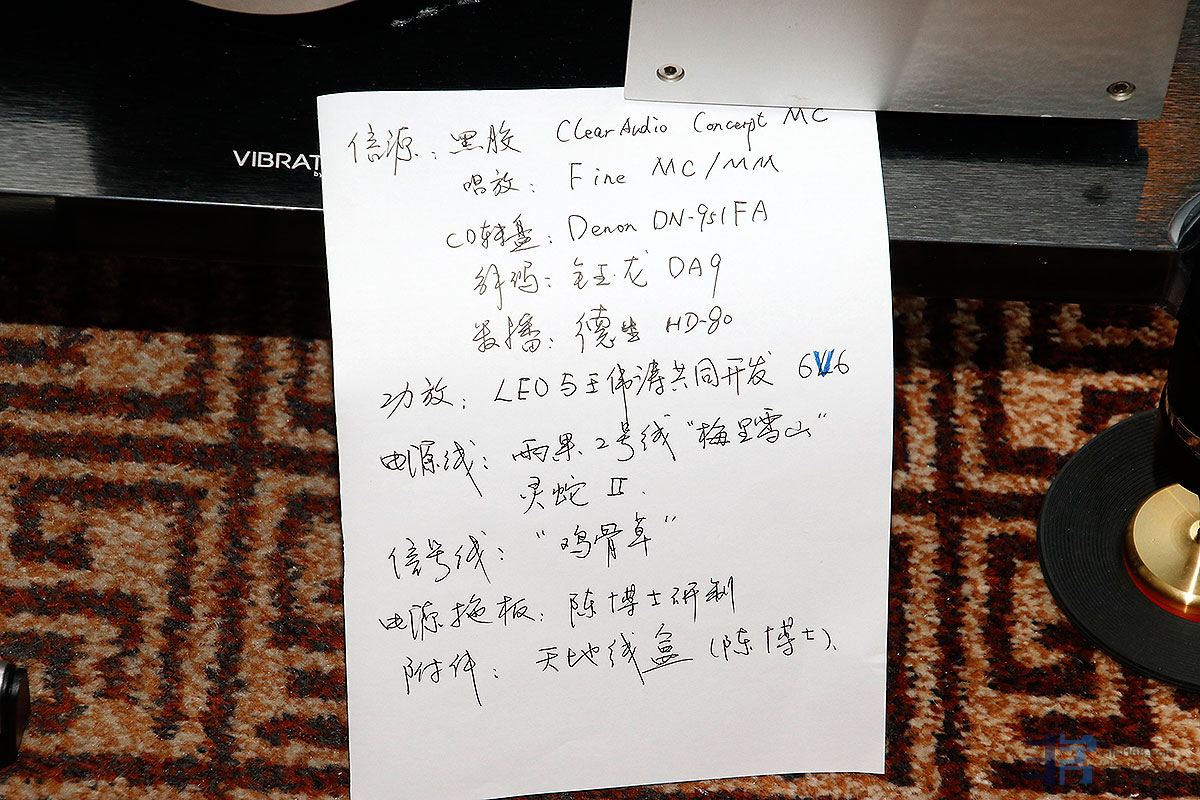 VIBRAT
信源：黑胶 ClearAudio Concerpt MC
唱放：Fine MC/MM
CD转盘：Denon DN-951FA
解码：钰龙 DA9
数播：德生 HD-80
功放：LEO与王伟涛共同开发 6V6
电源线：雨果2号线"梅里雪山"
灵蛇 II.
信号线："鸡骨草"
电源拖板：陈博士研制
附件：天地线盒（陈博士）.